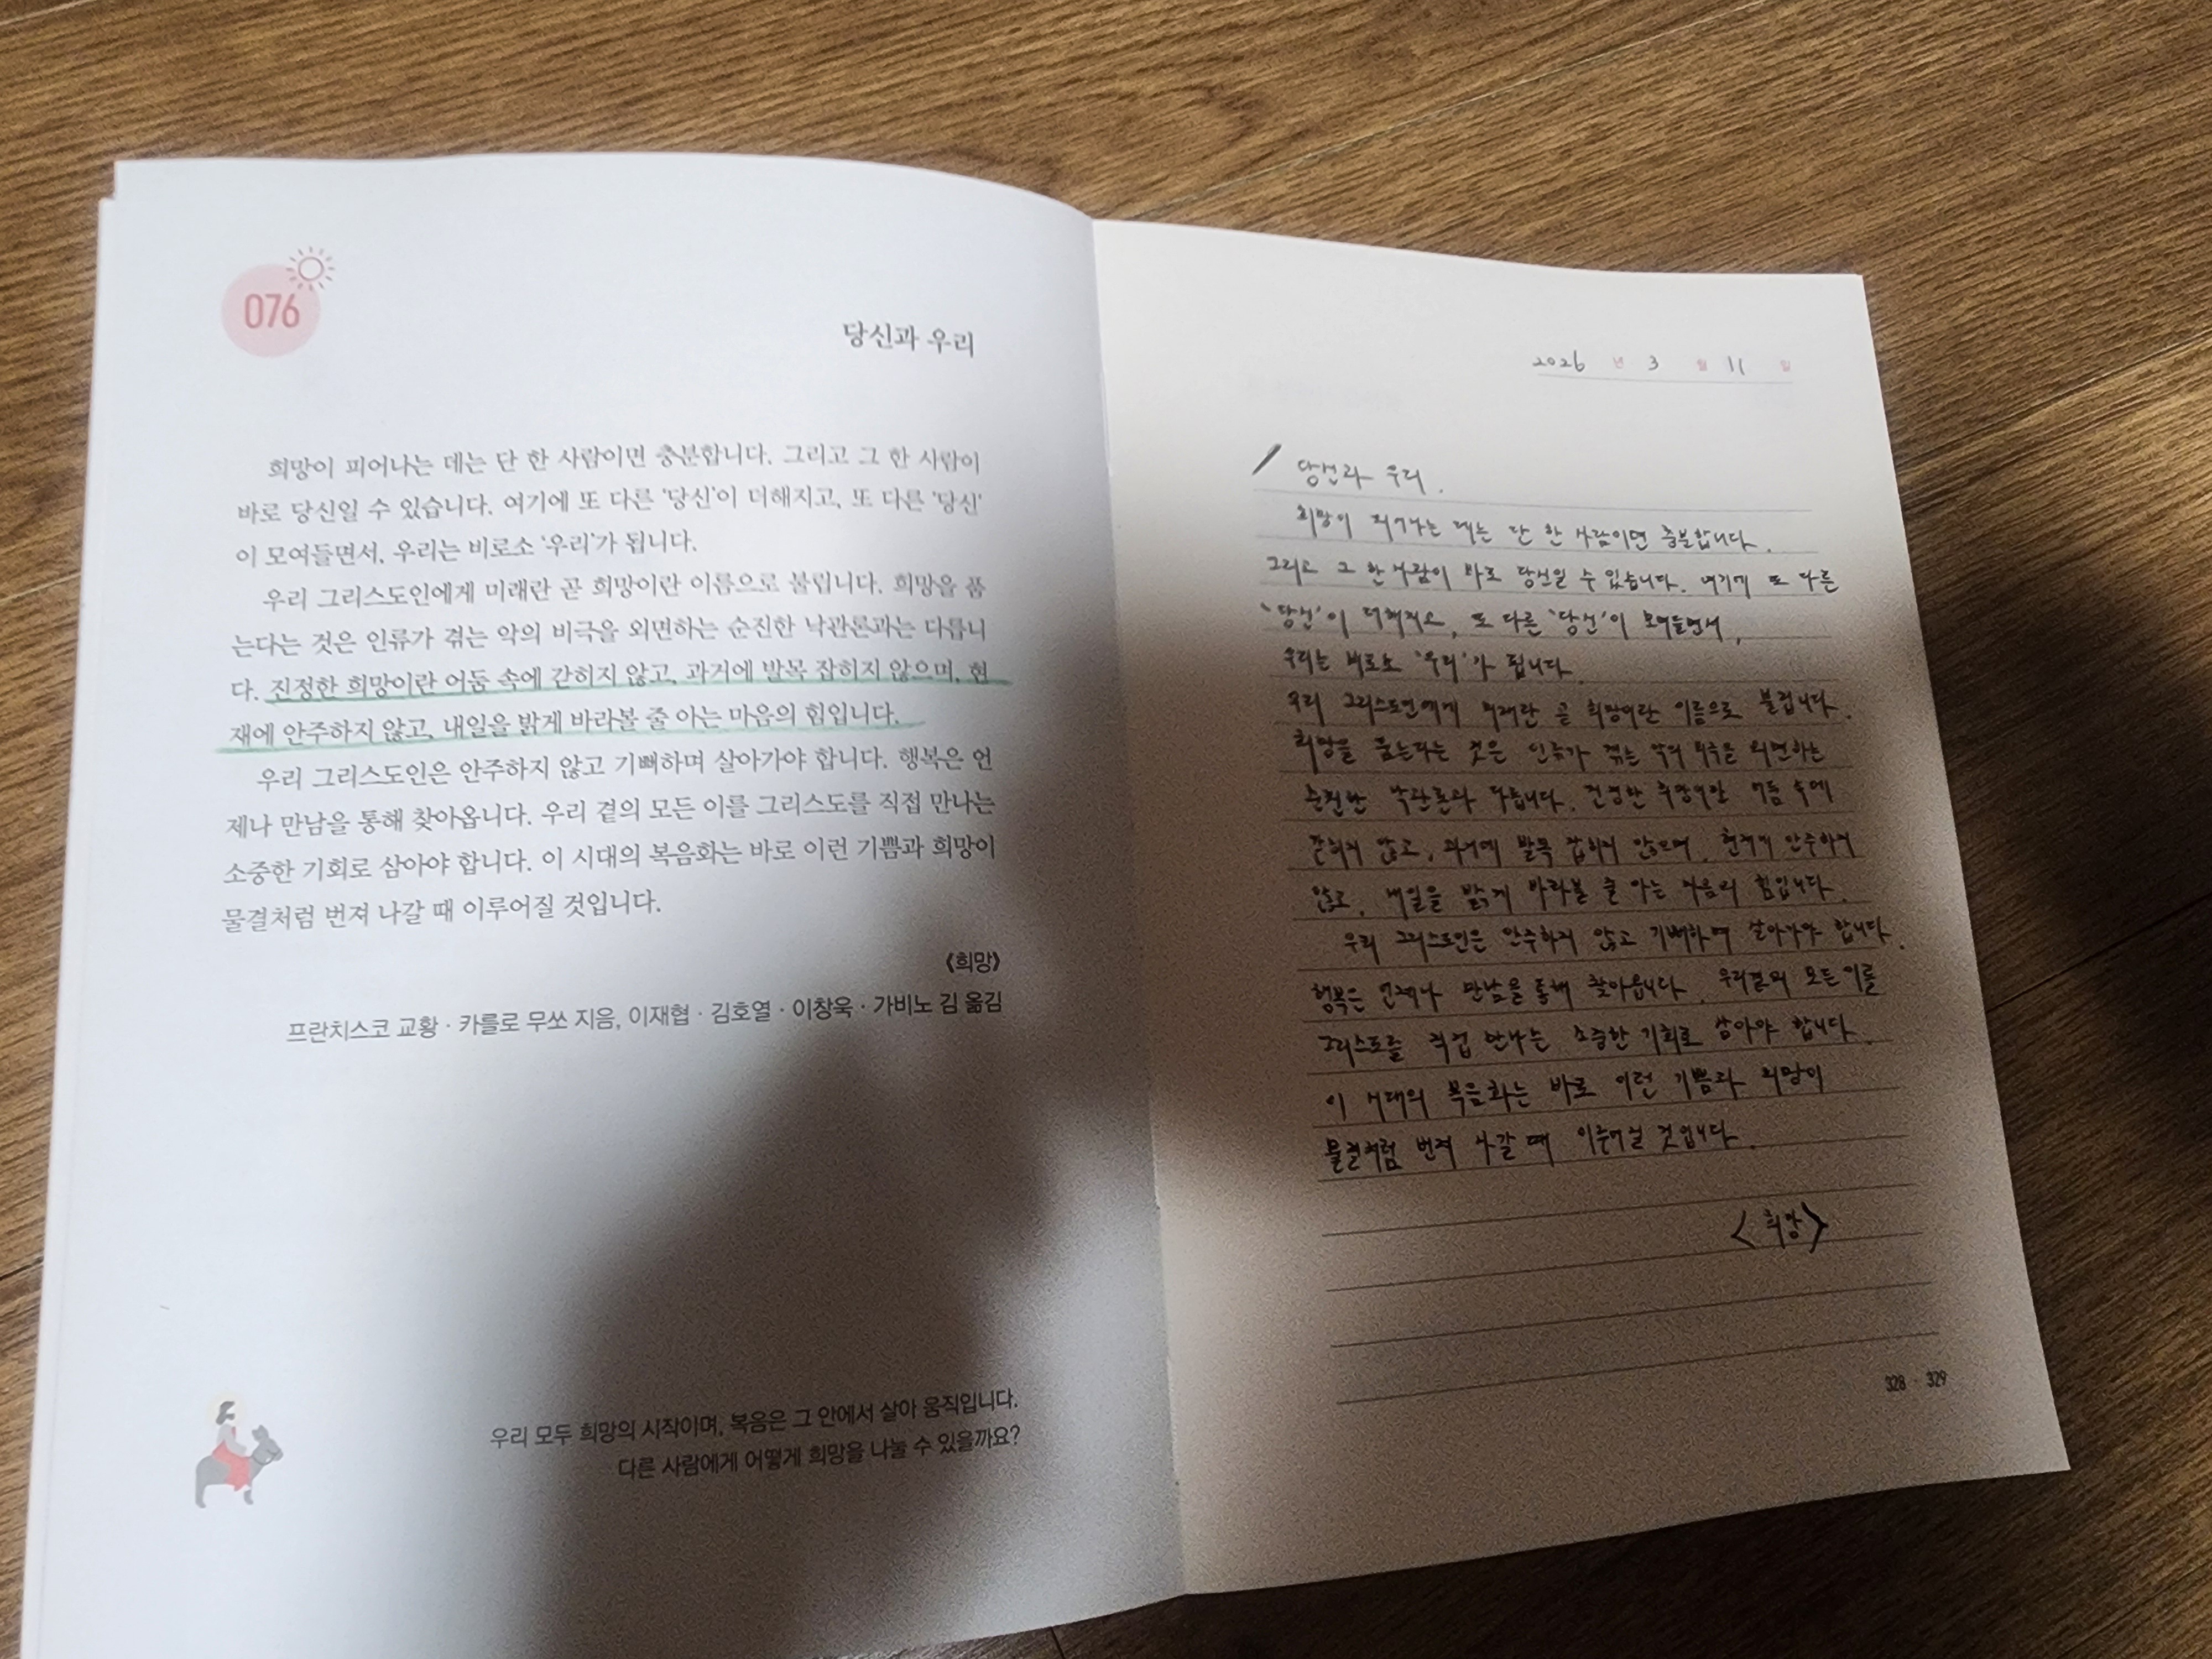 076
당신과 우리
희망이 피어나는 데는 단 한 사람이면 충분합니다. 그리고 그 한 사람이
바로 당신일 수 있습니다. 여기에 또 다른 ‘당신’이 더해지고, 또 다른 ‘당신’
이 모여들면서, 우리는 비로소 ‘우리’가 됩니다.
우리 그리스도인에게 미래란 곧 희망이란 이름으로 불립니다. 희망을 품
는다는 것은 인류가 겪는 악의 비극을 외면하는 순진한 낙관론과는 다릅니
다. 진정한 희망이란 어둠 속에 갇히지 않고, 과거에 발목 잡히지 않으며, 현
재에 안주하지 않고, 내일을 밝게 바라볼 줄 아는 마음의 힘입니다.
우리 그리스도인은 안주하지 않고 기뻐하며 살아가야 합니다. 행복은 언
제나 만남을 통해 찾아옵니다. 우리 곁의 모든 이를 그리스도를 직접 만나는
소중한 기회로 삼아야 합니다. 이 시대의 복음화는 바로 이런 기쁨과 희망이
물결처럼 번져 나갈 때 이루어질 것입니다.
《희망》
프란치스코 교황 · 카를로 무쏘 지음, 이재협 · 김호열 · 이창욱 · 가비노 김 옮김
우리 모두 희망의 시작이며, 복음은 그 안에서 살아 움직입니다.
다른 사람에게 어떻게 희망을 나눌 수 있을까요?
2026 년 3 월 11 일
당신과 우리.
희망이 피어나는 데는 단 한 사람이면 충분합니다.
그리고 그 한 사람이 바로 당신일 수 있습니다. 여기에 또 다른
‘당신’이 더해지고, 또 다른 ‘당신’이 모여들면서,
우리는 비로소 ‘우리’가 됩니다.
우리 그리스도인에게 미래란 곧 희망이란 이름으로 불립니다.
희망을 품는다는 것은 인류가 겪는 악의 비극을 외면하는
순진한 낙관론과 다릅니다. 진정한 희망이란 어둠 속에
갇히지 않고, 과거에 발목 잡히지 않으며, 현재에 안주하지
않고, 내일을 밝게 바라볼 줄 아는 마음의 힘입니다.
우리 그리스도인은 안주하지 않고 기뻐하며 살아가야 합니다.
행복은 언제나 만남을 통해 찾아옵니다. 우리곁의 모든 이를
그리스도를 직접 만나는 소중한 기회로 삼아야 합니다.
이 시대의 복음화는 바로 이런 기쁨과 희망이
물결처럼 번져 나갈 때 이루어질 것입니다.
<희망>
328 · 329